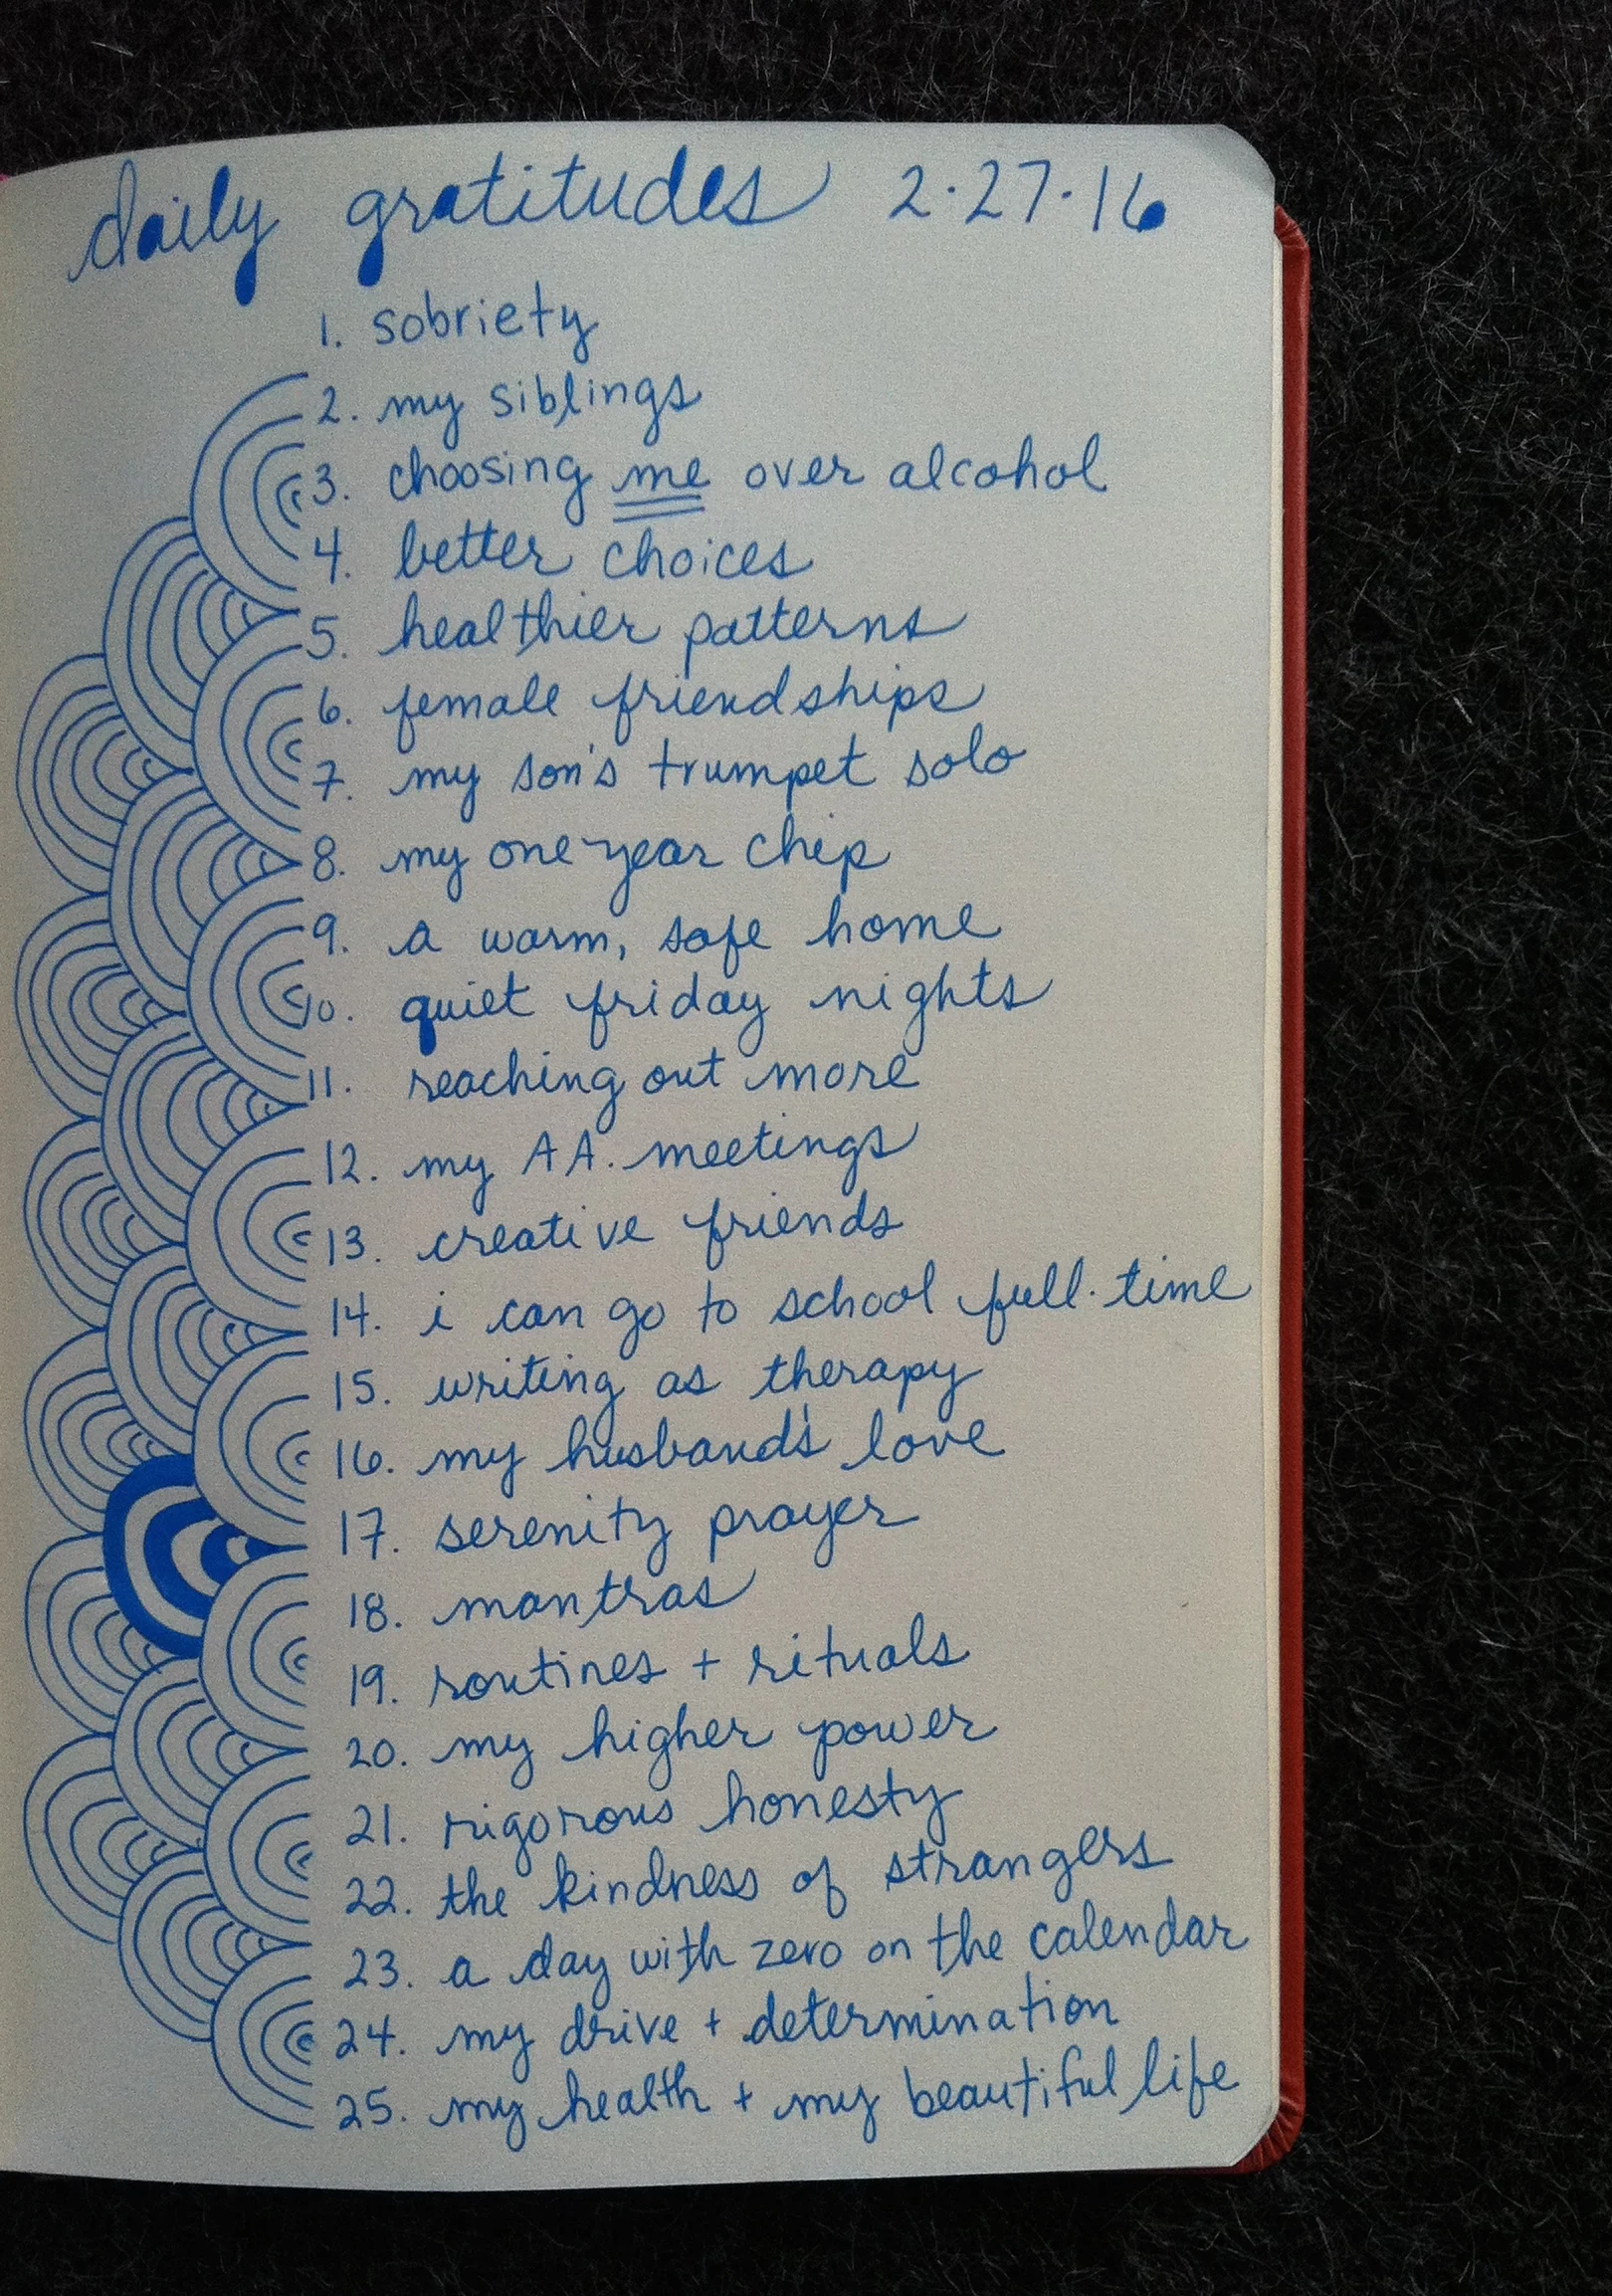 daily gratitudes 2·27·16
1. sobriety
2. my siblings
3. choosing me over alcohol
4. better choices
5. healthier patterns
6. female friendships
7. my son's trumpet solo
8. my one year chip
9. a warm, safe home
10. quiet friday nights
11. reaching out more
12. my AA. meetings
13. creative friends
14. i can go to school full·time
15. writing as therapy
16. my husband's love
17. serenity prayer
18. mantras
19. routines + rituals
20. my higher power
21. rigorous honesty
22. the kindness of strangers
23. a day with zero on the calendar
24. my drive + determination
25. my health + my beautiful life